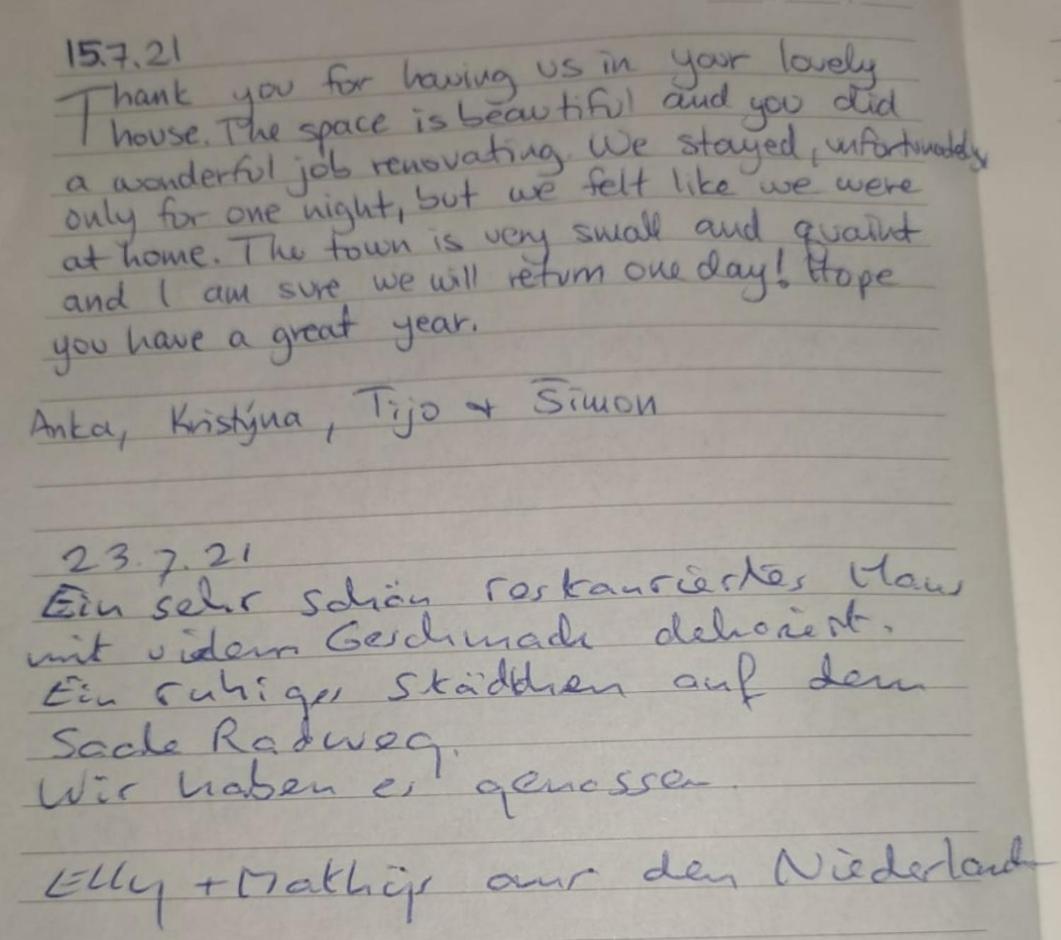 15.7.21
Thank you for having us in your lovely
house. The space is beautiful and you did
a wonderful job renovating. We stayed, unfortunately,
only for one night, but we felt like we were
at home. The town is very small and quaint
and I am sure we will return one day! Hope
you have a great year.
Anka, Kristýna, Tijo + Šimon
23.7.21
Ein sehr schön restauriertes Haus
mit vielem Geschmack dekoriert.
Ein ruhiges Städtchen auf dem
Saale Radweg.
Wir haben es genossen.
Elly + Mathijs aus den Niederland